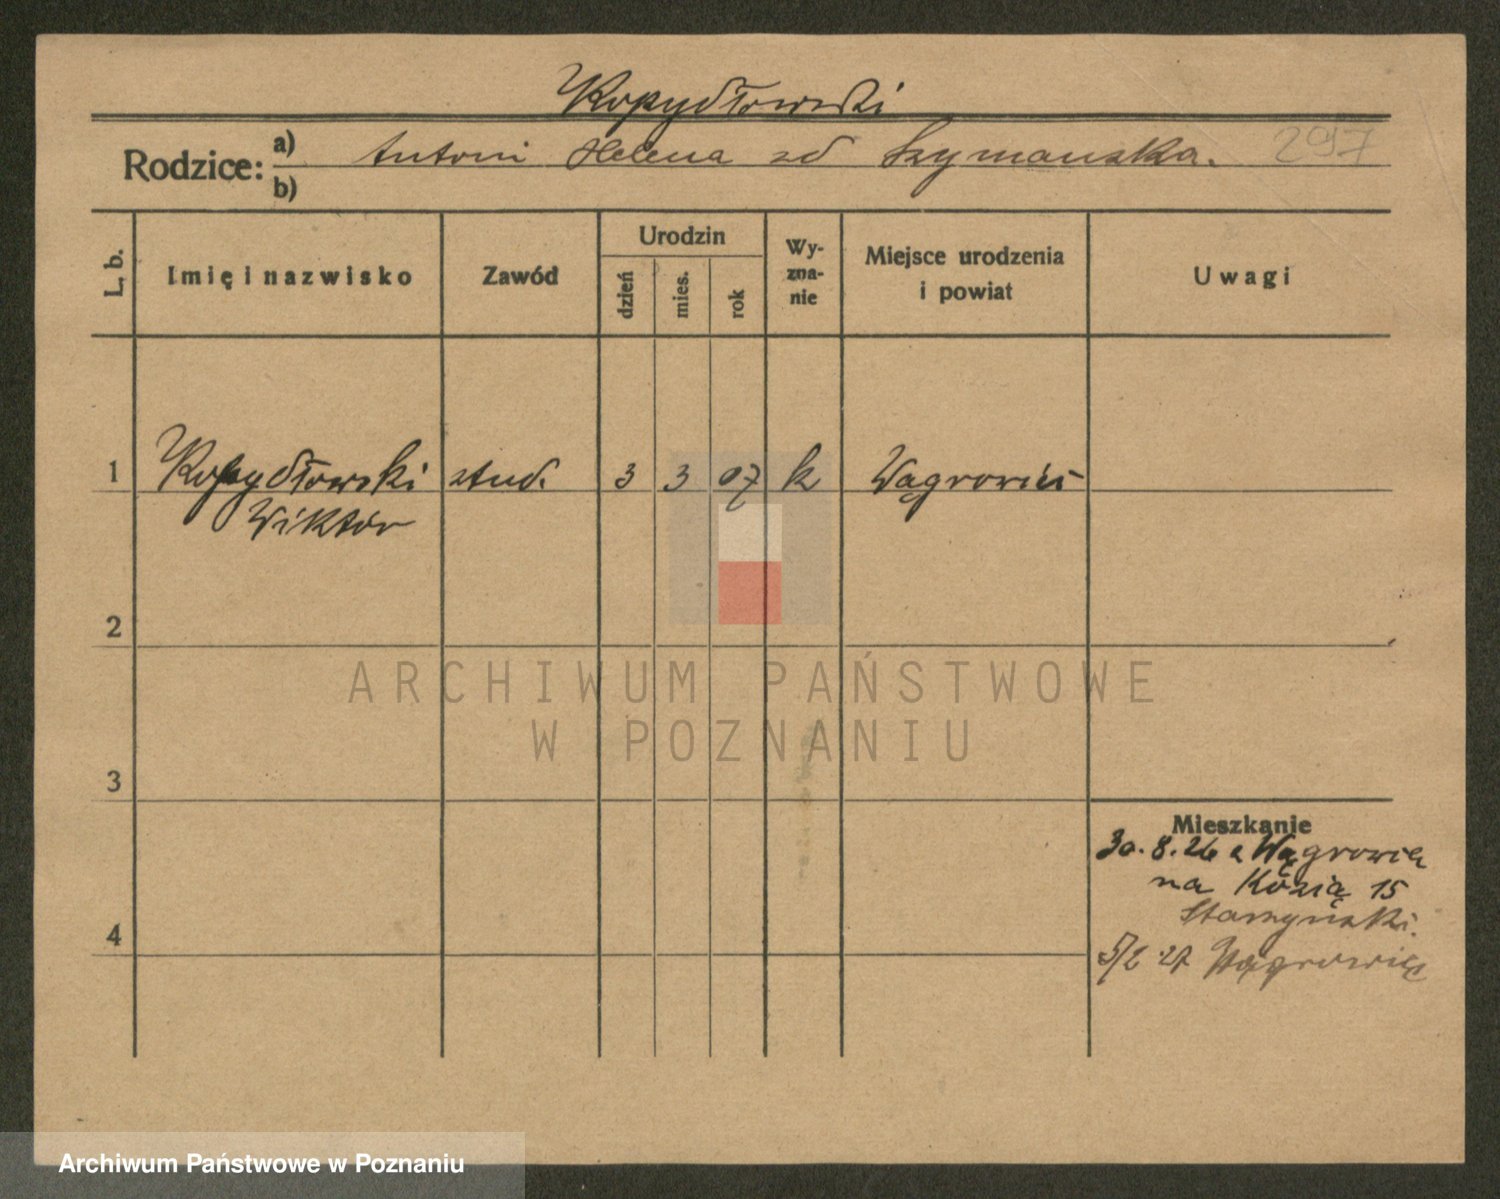 Kopydłowski
Rodzice: a) Antoni Helena zd Szymańska. 297
b)
L. b. Imię i nazwisko Zawód Urodzin dzień mies. rok Wy-zna-nie Miejsce urodzenia i powiat Uwagi
1 Kopydłowski stud. 3 3 07 k Wągrowiec
Wiktor
2
ARCHIWUM PAŃSTWOWE
W POZNANIU
3
Mieszkanie
30.8.26 z Wągrowca
na Kozią 15
Starzyński.
4
5/2 27 Wągrowiec
Archiwum Państwowe w Poznaniu